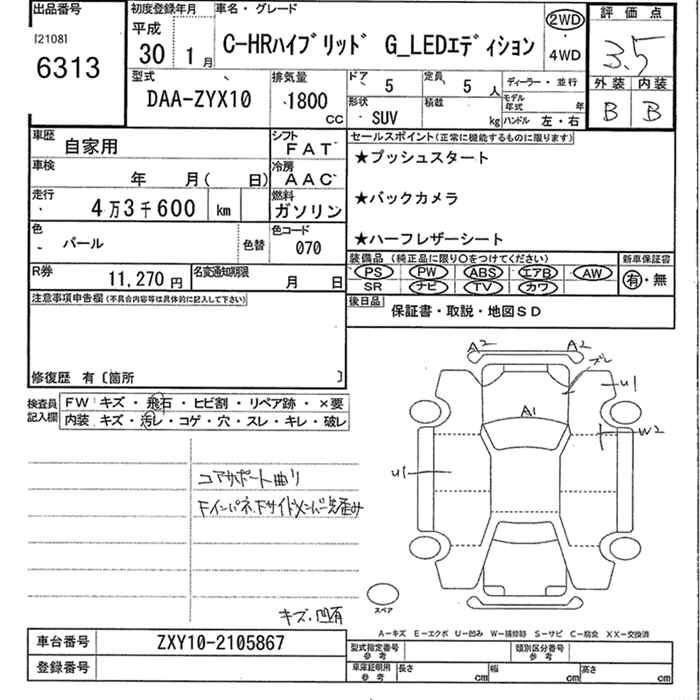 出品番号
[2108]
6313
初度登録年月
平成
30 1月
車名・グレード
C-HRハイブリッド G_LEDエディション
2WD
・
4WD
評価点
3.5
外装 内装
B B
型式
DAA-ZYX10
排気量
1800
cc
ドア 5
定員 5人
形状 SUV
積載 kg
ディーラー・並行
モデル年式 年
ハンドル 左・右
車歴 自家用
シフト FAT
車検 年 月( 日)
冷房 AAC
走行 4万3千600 km
燃料 ガソリン
色 パール 色替
色コード 070
R券 11,270円
名変通知期限 月 日
セールスポイント(正常に機能するものに限ります)
★プッシュスタート
★バックカメラ
★ハーフレザーシート
装備品 (純正品に限り○をつけてください) 新車保証書
PS PW ABS エアB AW
SR ナビ TV カワ
有・無
後日品 保証書・取説・地図SD
注意事項申告欄(不具合内容等は具体的に記入して下さい)
修復歴 有〔箇所 〕
検査員記入欄
FW キズ・飛石・ヒビ割・リペア跡・×要
内装 キズ・汚レ・コゲ・穴・スレ・キレ・破レ
コアサポート曲り
Fインパネ、Fサイドメンバー先歪み
キズ・凹有
A2 A2
ズレ
U1
A1
W2
U1
スペア
A-キズ E-エクボ U-凹み W-補修跡 S-サビ C-腐食 XX-交換済
車台番号 ZXY10-2105867
登録番号
型式指定番号 参考
類別区分番号 参考
車庫証明用 参考
長さ cm 幅 cm 高さ cm